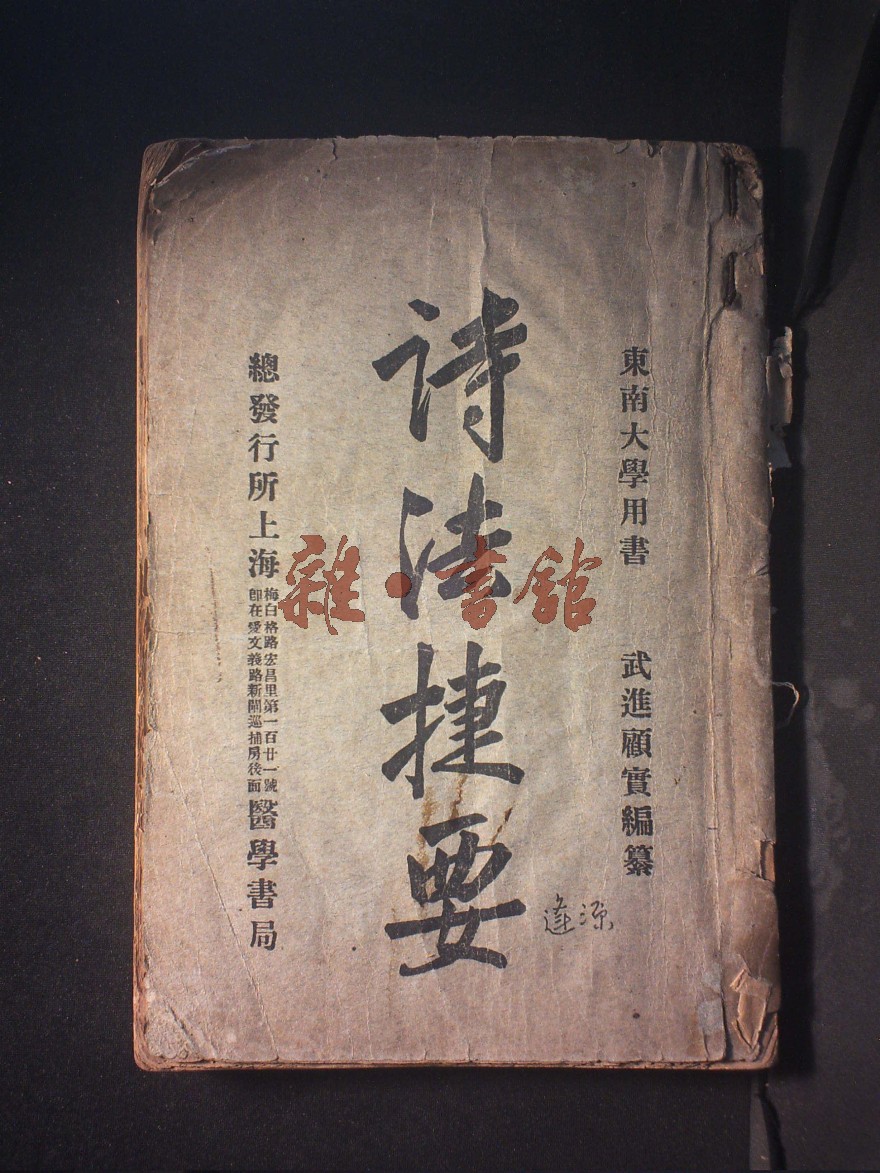 東南大學用書 武進顧實編纂
詩法捷要
逢源
總發行所上海
梅白格路宏昌里第一百廿一號
卽在愛文義路新閘巡捕房後面
醫學書局
雜·書館